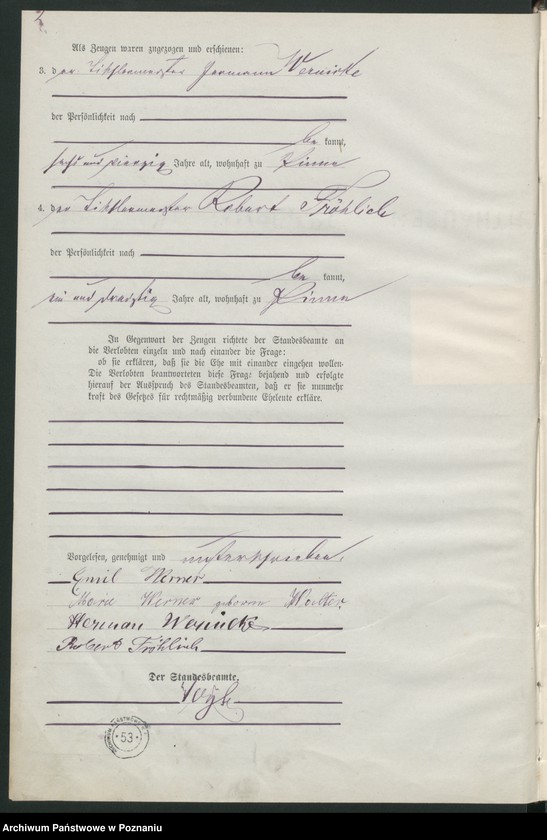 2
Als Zeugen waren zugezogen und erschienen:
3. der Tischlermeister Hermann Wernicke
der Persönlichkeit nach
be kannt,
sechs und vierzig Jahre alt, wohnhaft zu Pinne
4. der Tischlermeister Robert Fröhlich
der Persönlichkeit nach
be kannt,
ein und dreißig Jahre alt, wohnhaft zu Pinne
In Gegenwart der Zeugen richtete der Standesbeamte an
die Verlobten einzeln und nach einander die Frage:
ob sie erklären, daß sie die Ehe mit einander eingehen wollen.
Die Verlobten beantworteten diese Frage bejahend und erfolgte
hierauf der Ausspruch des Standesbeamten, daß er sie nunmehr
kraft des Gesetzes für rechtmäßig verbundene Eheleute erkläre.
Vorgelesen, genehmigt und unterschrieben.
Emil Werner
Maria Werner geborene
Herman Wernicke
Robert Fröhlich
Der Standesbeamte.
53
Archiwum Państwowe w Poznaniu